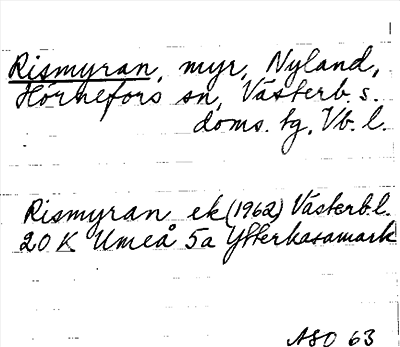 Rismyran, myr, Nyland,
Hörnefors sn, Västerb. s.
doms. tg, Vb. l.
Rismyran ek (1962) Västerb. l.
20 K Umeå 5a Ytterkasamark
ASO 63